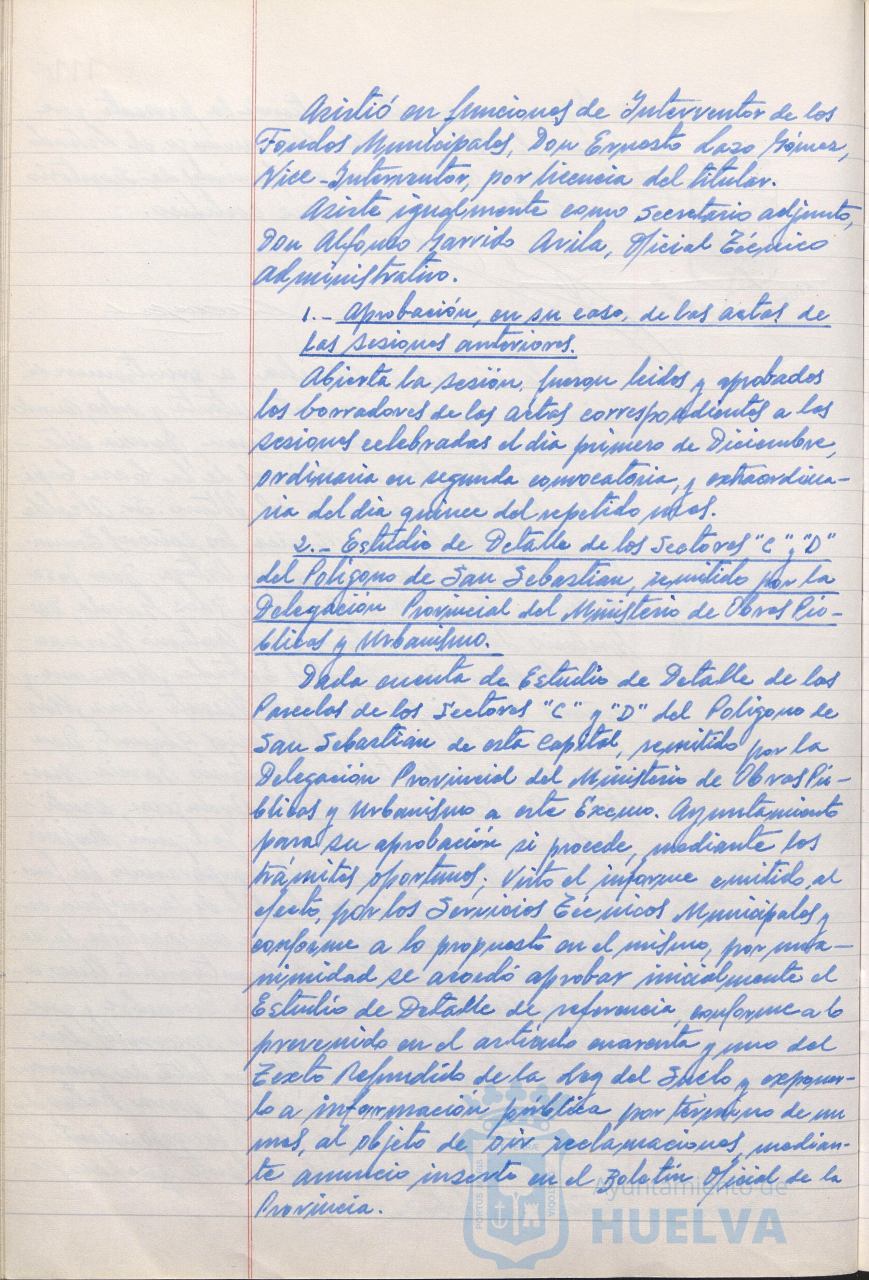 Asistió en funciones de Interventor de los
Fondos Municipales, Don Ernesto Lazo Gómez,
Vice-Interventor, por licencia del titular.
Asiste igualmente como Secretario adjunto,
Don Alfonso Garrido Avila, Oficial Técnico
Administrativo.
1.- Aprobación, en su caso, de las actas de
las sesiones anteriores.
Abierta la sesión, fueron leidos y aprobados
los borradores de las actas correspondientes a las
sesiones celebradas el dia primero de Diciembre,
ordinaria en segunda convocatoria, y extraordina-
ria del dia quince del repetido mes.
2.- Estudio de Detalle de los Sectores "C" y "D"
del Poligono de San Sebastián, remitido por la
Delegación Provincial del Ministerio de Obras Pú-
blicas y Urbanismo.
Dada cuenta de Estudio de Detalle de las
Parcelas de los Sectores "C" y "D" del Poligono de
San Sebastián de esta Capital, remitido por la
Delegación Provincial del Ministerio de Obras Pú-
blicas y Urbanismo a este Excmo. Ayuntamiento
para su aprobación si procede, mediante los
trámites oportunos; Visto el informe emitido, al
efecto, por los Servicios Técnicos Municipales y
conforme a lo propuesto en el mismo, por una-
nimidad se acordó aprobar inicialmente el
Estudio de Detalle de referencia, conforme a lo
prevenido en el artículo cuarenta y uno del
Texto Refundido de la Ley del Suelo y exponer-
lo a información pública por término de un
mes, al objeto de oir reclamaciones, median-
te anuncio inserto en el Boletín Oficial de la
Provincia.
Ayuntamiento de
HUELVA